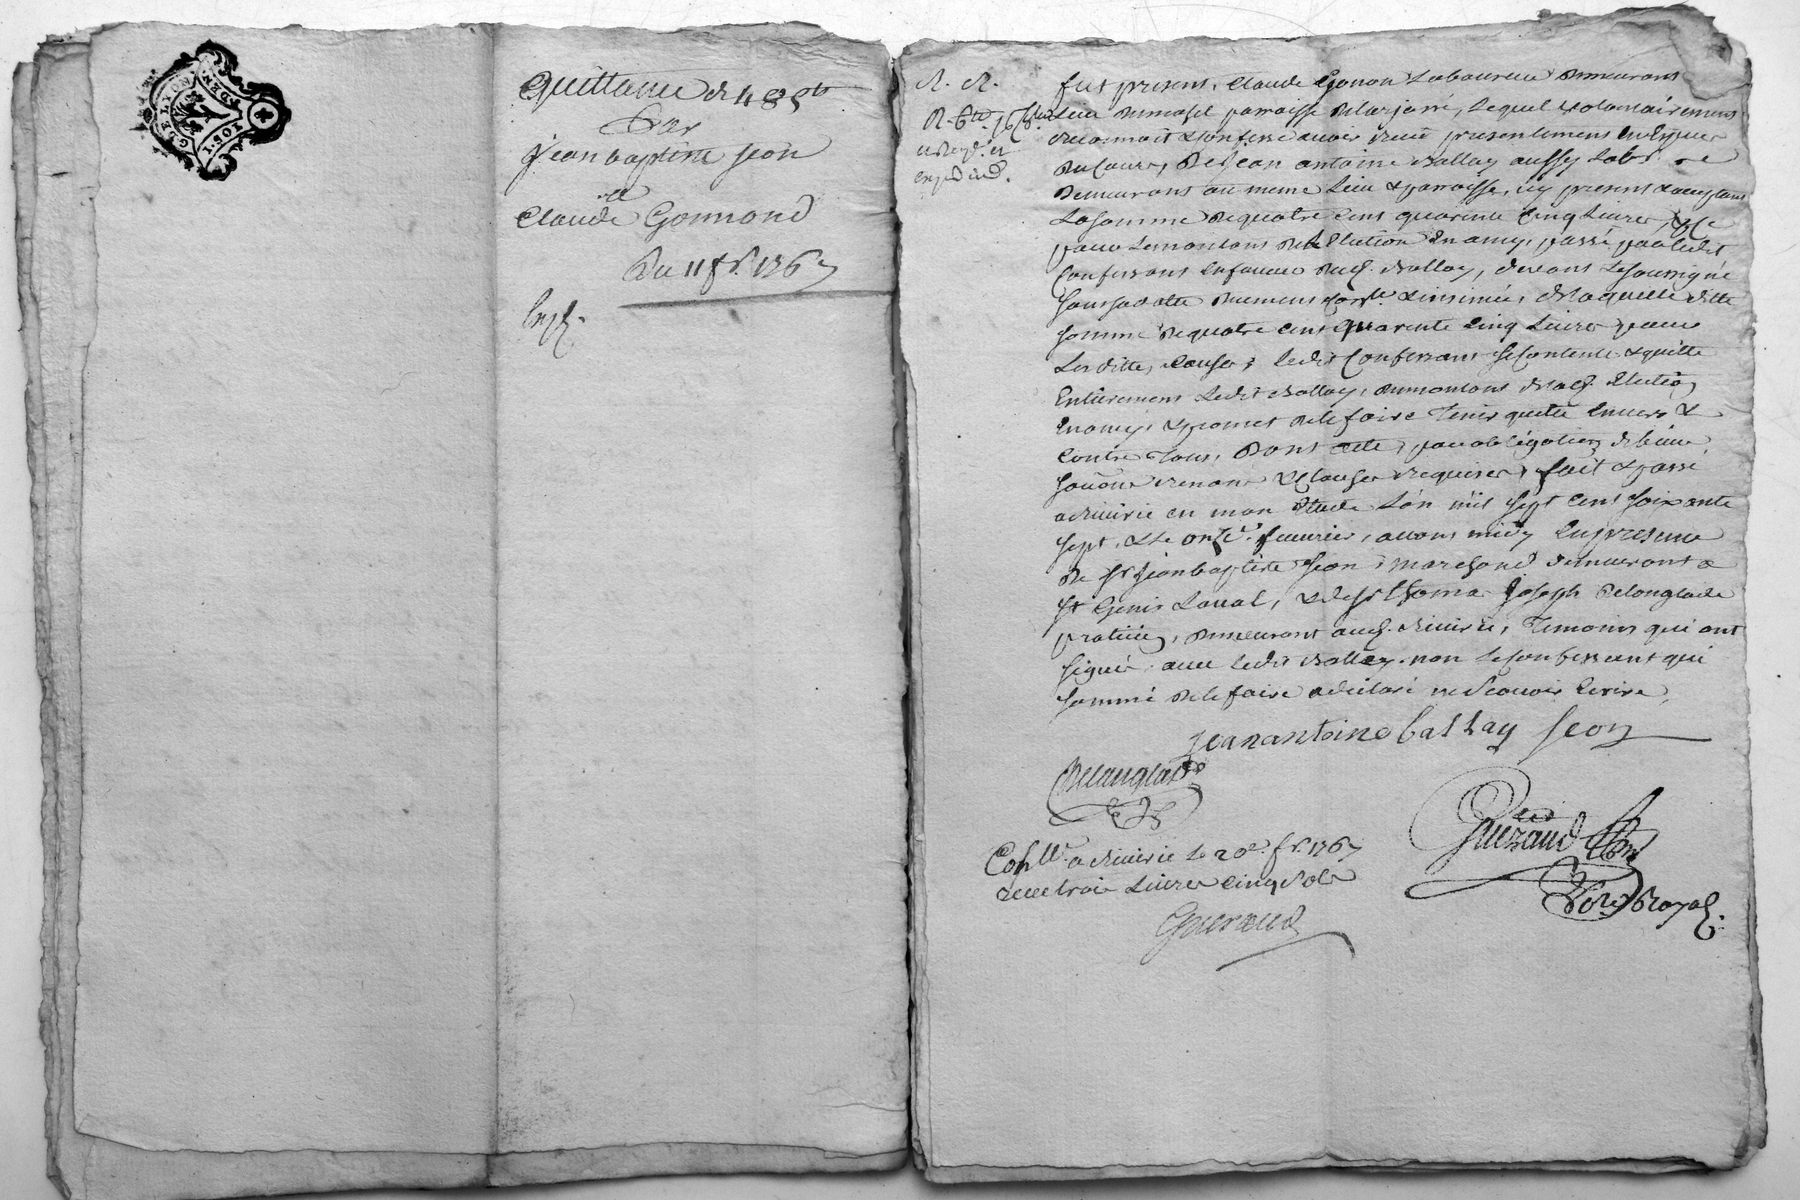 GE. DE LYON
I. SOL
Quittance de 485 lt
Par
Jean baptiste seon
a
Claude Gonnond
Du 11 fr. 1767
R. R.
fut present, Claude Gonon Laboureur demeurant
Lieu parroisse Delarjassé, Lequel volontairement
reconnoit & confesse avoir receu presentement en Espece
Du Cours, De Jean antoine Ballay aussy Labr
Demeurant au meme Lieu & parroisse, icy present & acceptant
La somme De quatre cent quarente Cinq Livres,
pour Le montant De L'Election En amy, passé par ledit
Confessant En faveur Dud. Ballay, devant Le soussigné
sous sa datte & insinuée, De laquelle ditte
somme De quatre cent quarente Cinq Livres pour
Les ditte, Causes, Ledit Confessant se Contente & quitte
Entierement Ledit Ballay, du montant de lad. Election
En amy, & promet De le faire Tenir quitte Envers &
Contre Tous, Dont acte, par obligation de biens
& Clauses requises, fait & passé
a Riverie en mon Etude L'an mil sept Cent soixante
sept, & le onze. feuvrier, avant midy En presence
de Sr. Jean baptiste seon marchand demeurant a
St Genis Laval, & de Sr thoma Joseph Delanglade
praticien, Demeurant aud. Riverie, Temoins qui ont
signé avec Ledit Ballay. non Le Confessant qui
sommé De le faire a declaré ne Scavoir Ecrire,
jean antoine ballay seon
Delanglade
Gueraud
Nore. Royal
Con.lle a Riverie Le 20e. fr. 1767
Receu trois Livres Cinq Sols
Gueraud